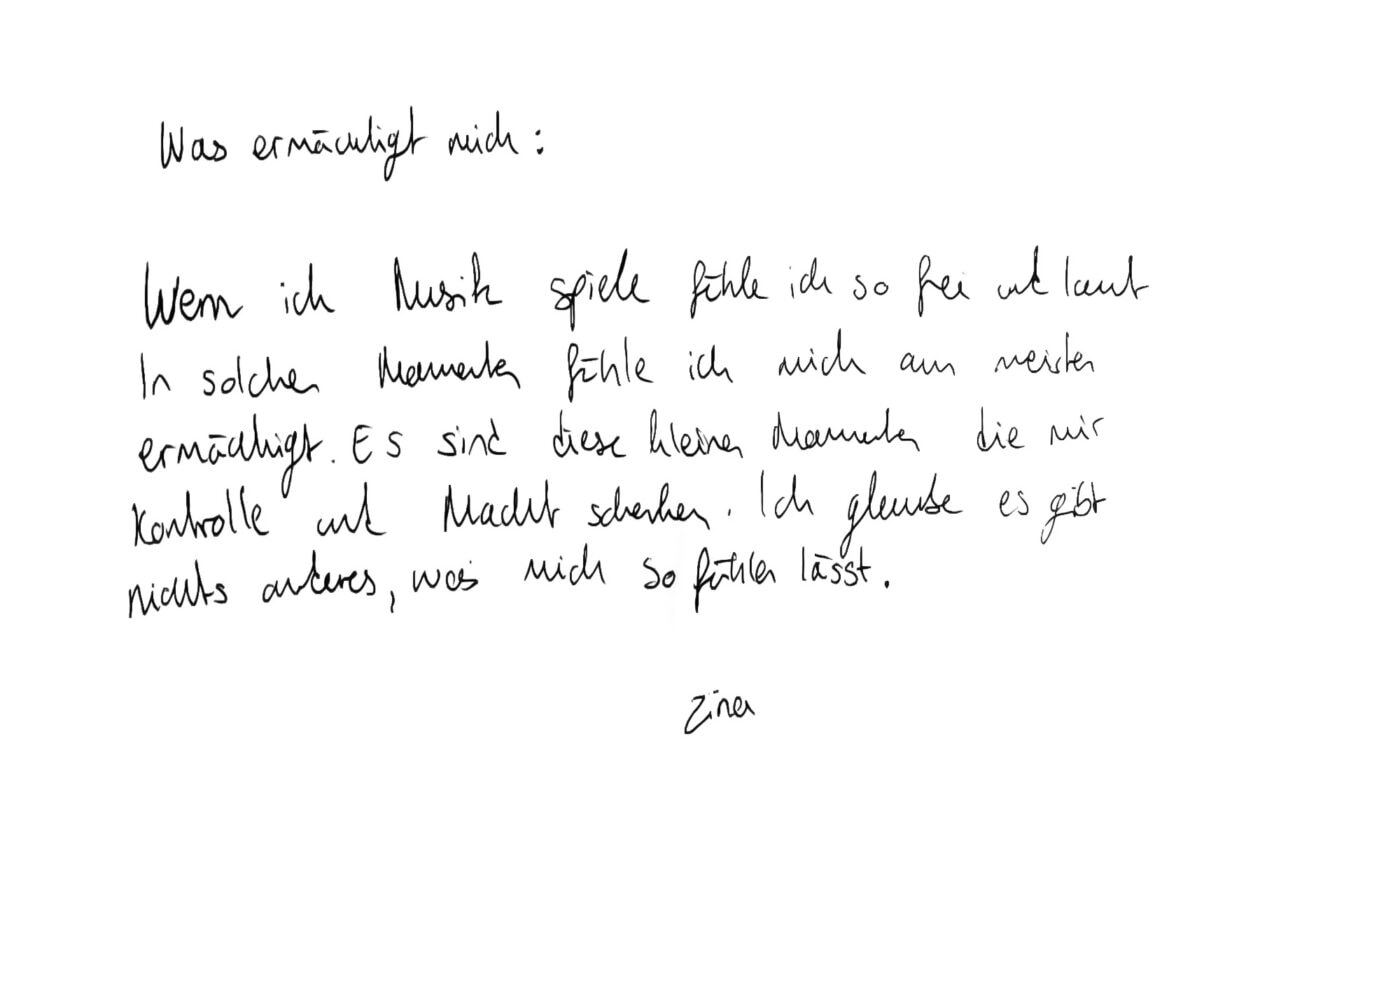 Was ermächtigt mich:
Wenn ich Musik spiele fühle ich so frei und laut
In solchen Momenten fühle ich mich am meisten
ermächtigt. Es sind diese kleinen Momenten die mir
Kontrolle und Macht schenken. Ich glaube es gibt
nichts anderes, was mich so fühlen lässt.
Zina